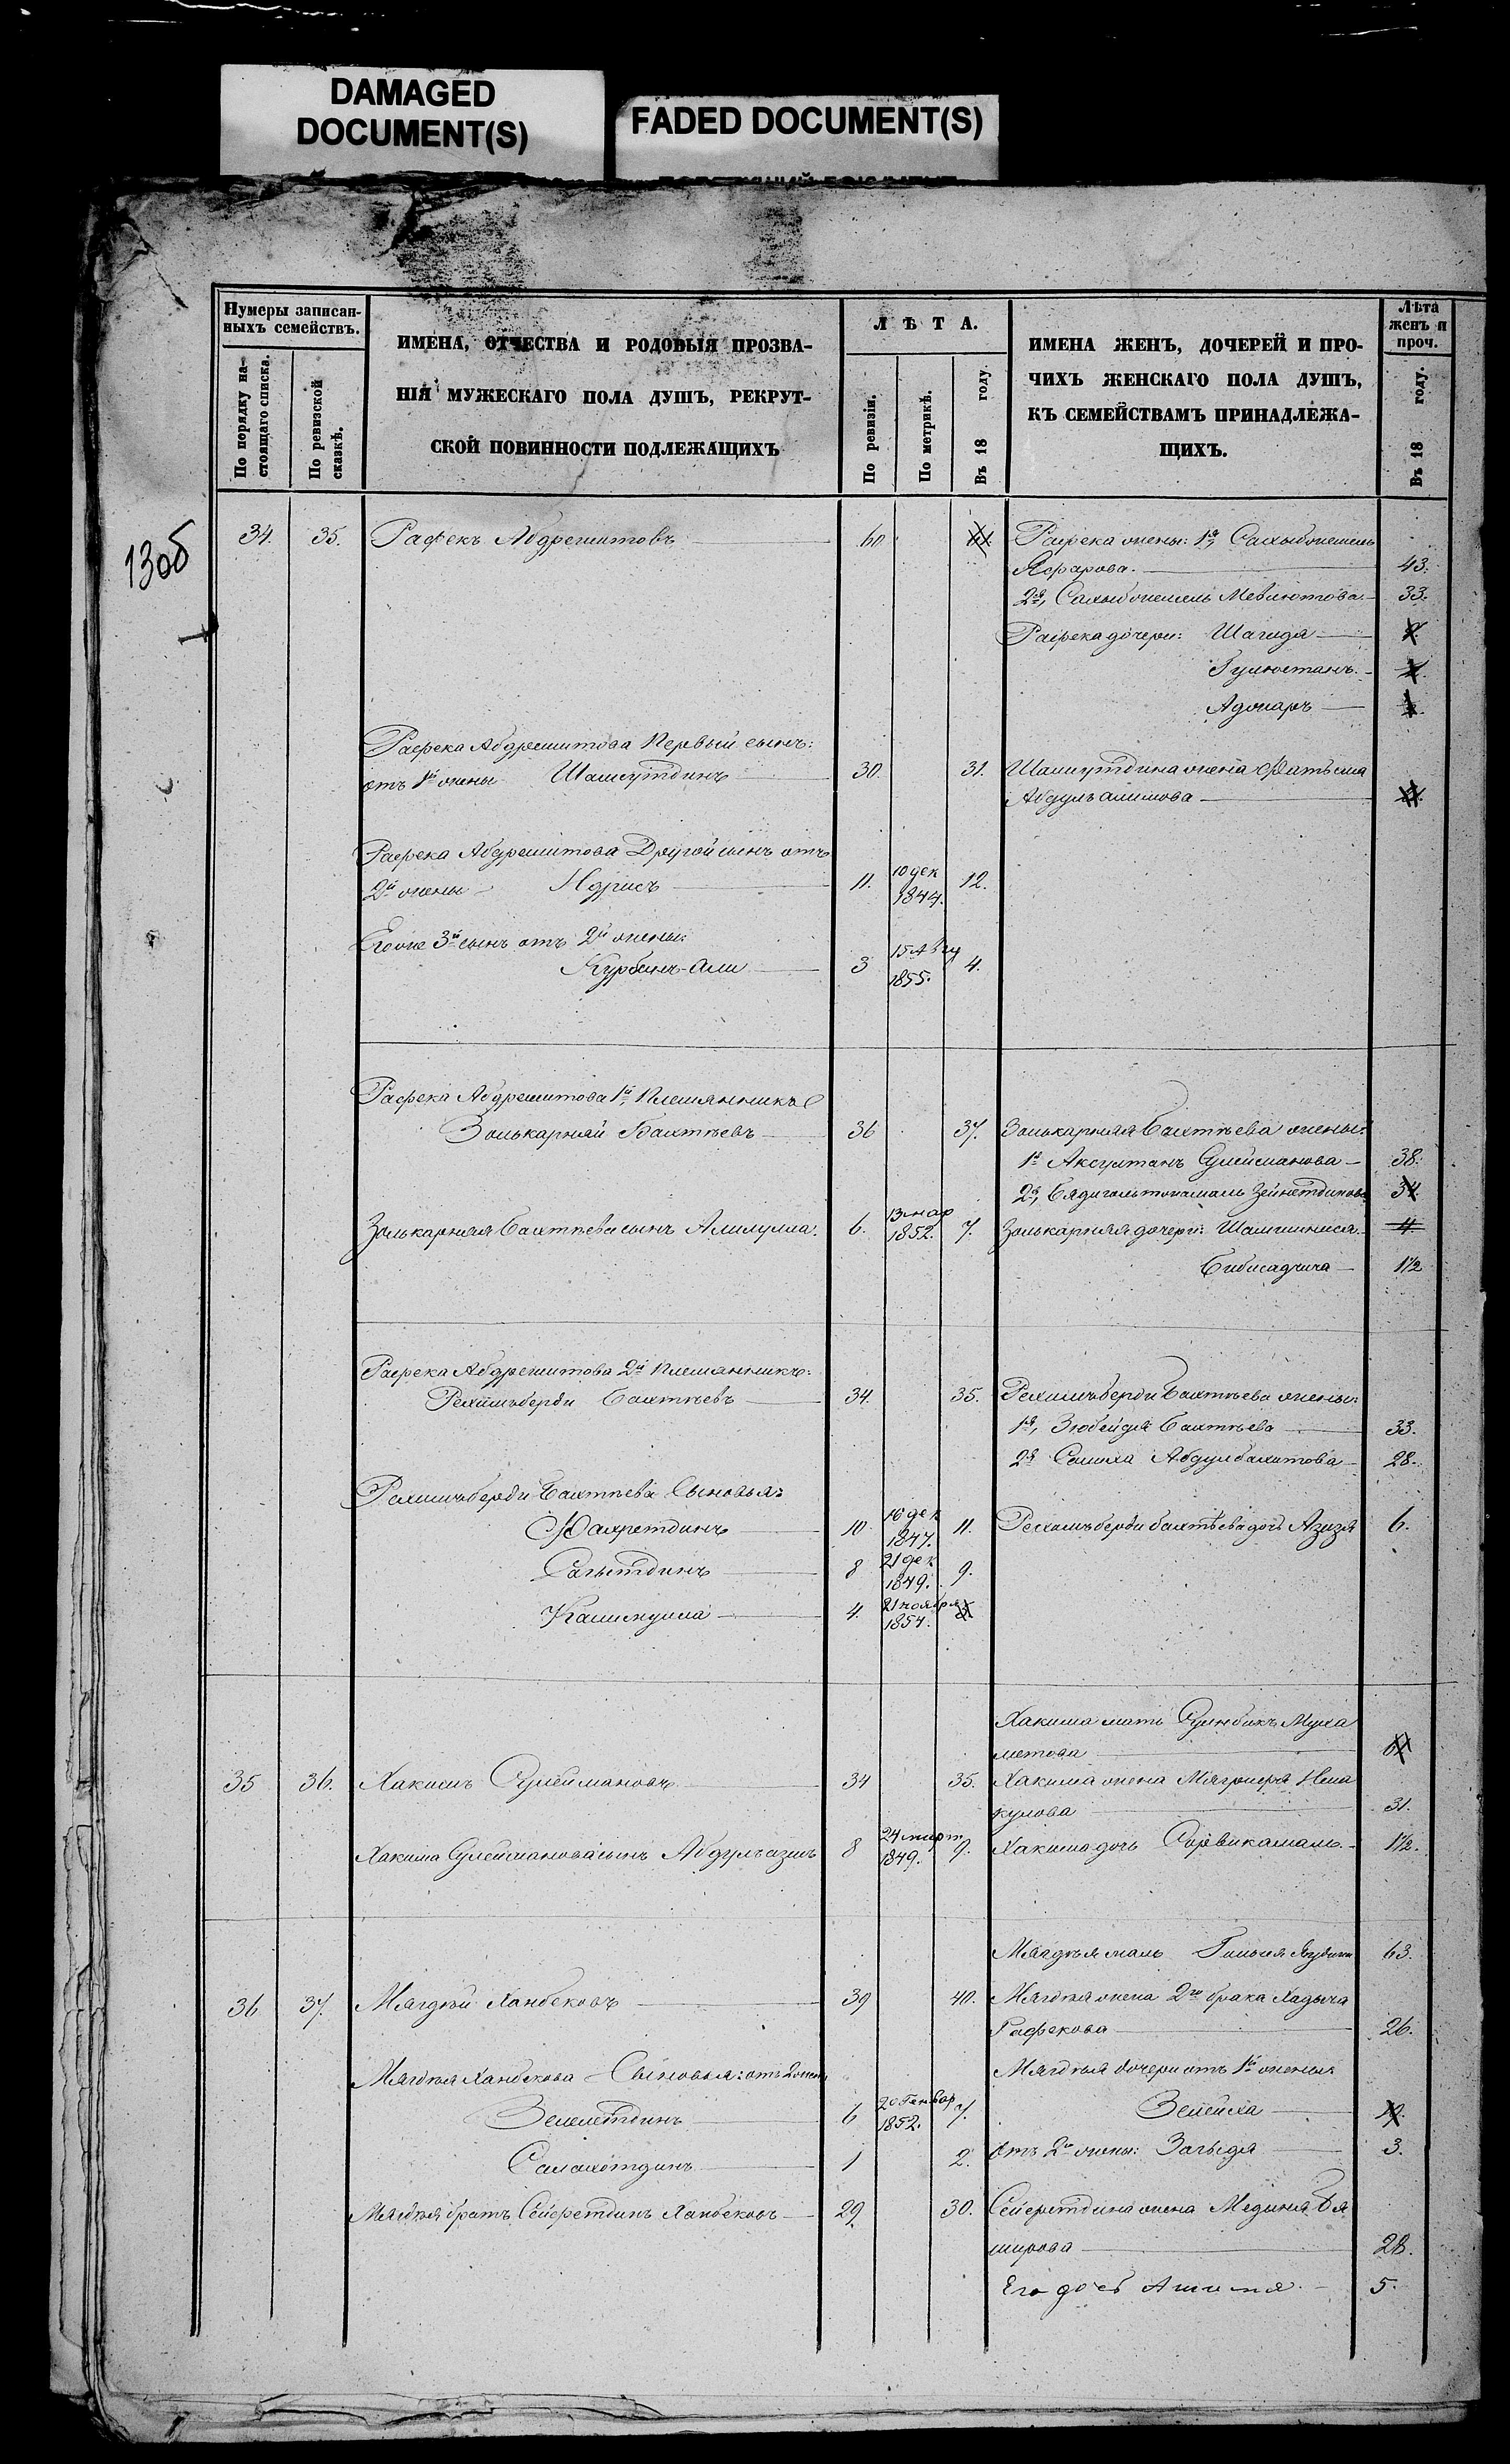 DAMAGED
DOCUMENT(S)
FADED DOCUMENT(S)
Нумеры записан-
ныхъ семействъ.
По порядку на-
стоящаго списка.
По ревизской
сказкѣ.
ИМЕНА, ОТЧЕСТВА И РОДОВЫЯ ПРОЗВА-
НІЯ МУЖЕСКАГО ПОЛА ДУШЪ, РЕКРУТ-
СКОЙ ПОВИННОСТИ ПОДЛЕЖАЩИХЪ
ЛѢТА.
По ревизіи.
По метрикѣ.
Въ 18 году
ИМЕНА ЖЕНЪ, ДОЧЕРЕЙ И ПРО-
ЧИХЪ ЖЕНСКАГО ПОЛА ДУШЪ,
КЪ СЕМЕЙСТВАМЪ ПРИНАДЛЕЖА-
ЩИХЪ.
Лѣта
женъ и
проч.
Въ 18 году.
130б
34. 35. Рафекъ Абдрешитовъ 60 61 Рафека жены: 1я, Сахыбжемель
Яфарова. 43.
2я, Сахыбжемель Мевлютова 33.
Рафека дочери: Шагида
Гулюстанъ.
Адгаръ
Рафека Абдрешитова Первый сынъ:
отъ 1й жены Шамсутдинъ 30. 31. Шамсутдина жена Фатьма
Абдулъалимова
Рафека Абдрешитова Другой сынъ отъ
2й жены Идрисъ 11. 10 дек 1844. 12.
Егоже 3й сынъ отъ 2й жены:
Курбанъ-Али 3 15 Авгу 1855. 4.
Рафека Абдрешитова 1й, Племянникъ
Золькарняй Бахтѣевъ 36 37. Золькарняя Бахтѣева жены:
1я Аксултанъ Сулейманова 38.
2я, Бядигольжамаль Зейнетдинова 34.
Золькарняя Бахтѣева сынъ Алилулла. 6. 13 мар 1852. 7. Золькарняя дочери: Шамшиниса. 4.
Бибисадгича 1½
Рафека Абдрешитова 2й Племянникъ:
Рехимъберди Бахтѣевъ 34. 35. Рехимъберди Бахтѣева жены:
1я, Зюбейдя Бахтѣева 33.
2я Салиха Абдулвахитова 28.
Рехимъберди Бахтѣева Сыновья:
Фахретдинъ 10. 10 дек 1847. 11. Рехимъберди Бахтѣева дочь Азизя 6.
Сагытдинъ 8 21 дек 1849. 9.
Калимулла 4. 21 ноября 1854.
Хакима мать Сунбикъ Муха
метова 61
35 36. Хакимъ Сулеймановъ 34 35. Хакима жена Мягриефа Има
кулова 31.
Хакима Сулейманова сынъ Абдулъазизъ 8 24 март 1849. 9. Хакима дочь Сервикамаль. 1½.
Мягдѣя мать 63.
36 37. Мягдѣй Ханбековъ 39 40. Мягдѣя жена 2го брака Хадыча
Рафекова 26.
Мягдѣя Ханбекова Сыновья: отъ 2 жены Мягдѣя дочери отъ 1й жены:
Земелетдинъ 6 20 Генвар 1852. 7. Зелейха
Салахотдинъ 1 2. отъ 2й жены: Загыдя 3.
Мягдѣя братъ Сейфетдинъ Ханбековъ 29. 30. Сейфетдина жена Мединя Бя
широва 28.
Его дочь Алимя 5.